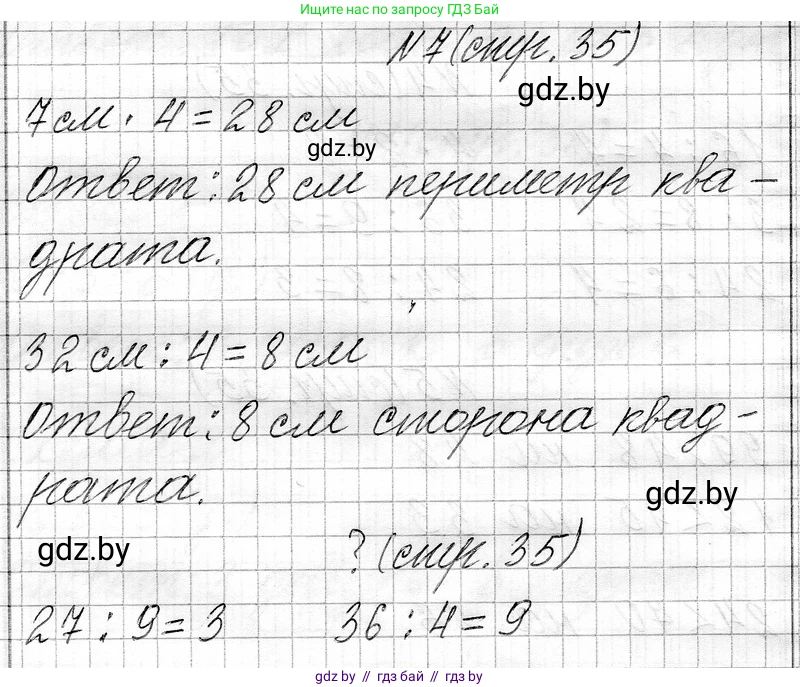 Ищите нас по запросу ГДЗ Бай
№7(стр. 35)
gdz.by
7см · 4 = 28 см
gdz.by
Ответ: 28 см периметр ква-
драта.
32 см : 4 = 8 см
Ответ: 8 см сторона квад-
рата.
gdz.by
gdz.by
? (стр. 35)
27 : 9 = 3 36 : 4 = 9
gdz.by // гдз бай // gdz.by